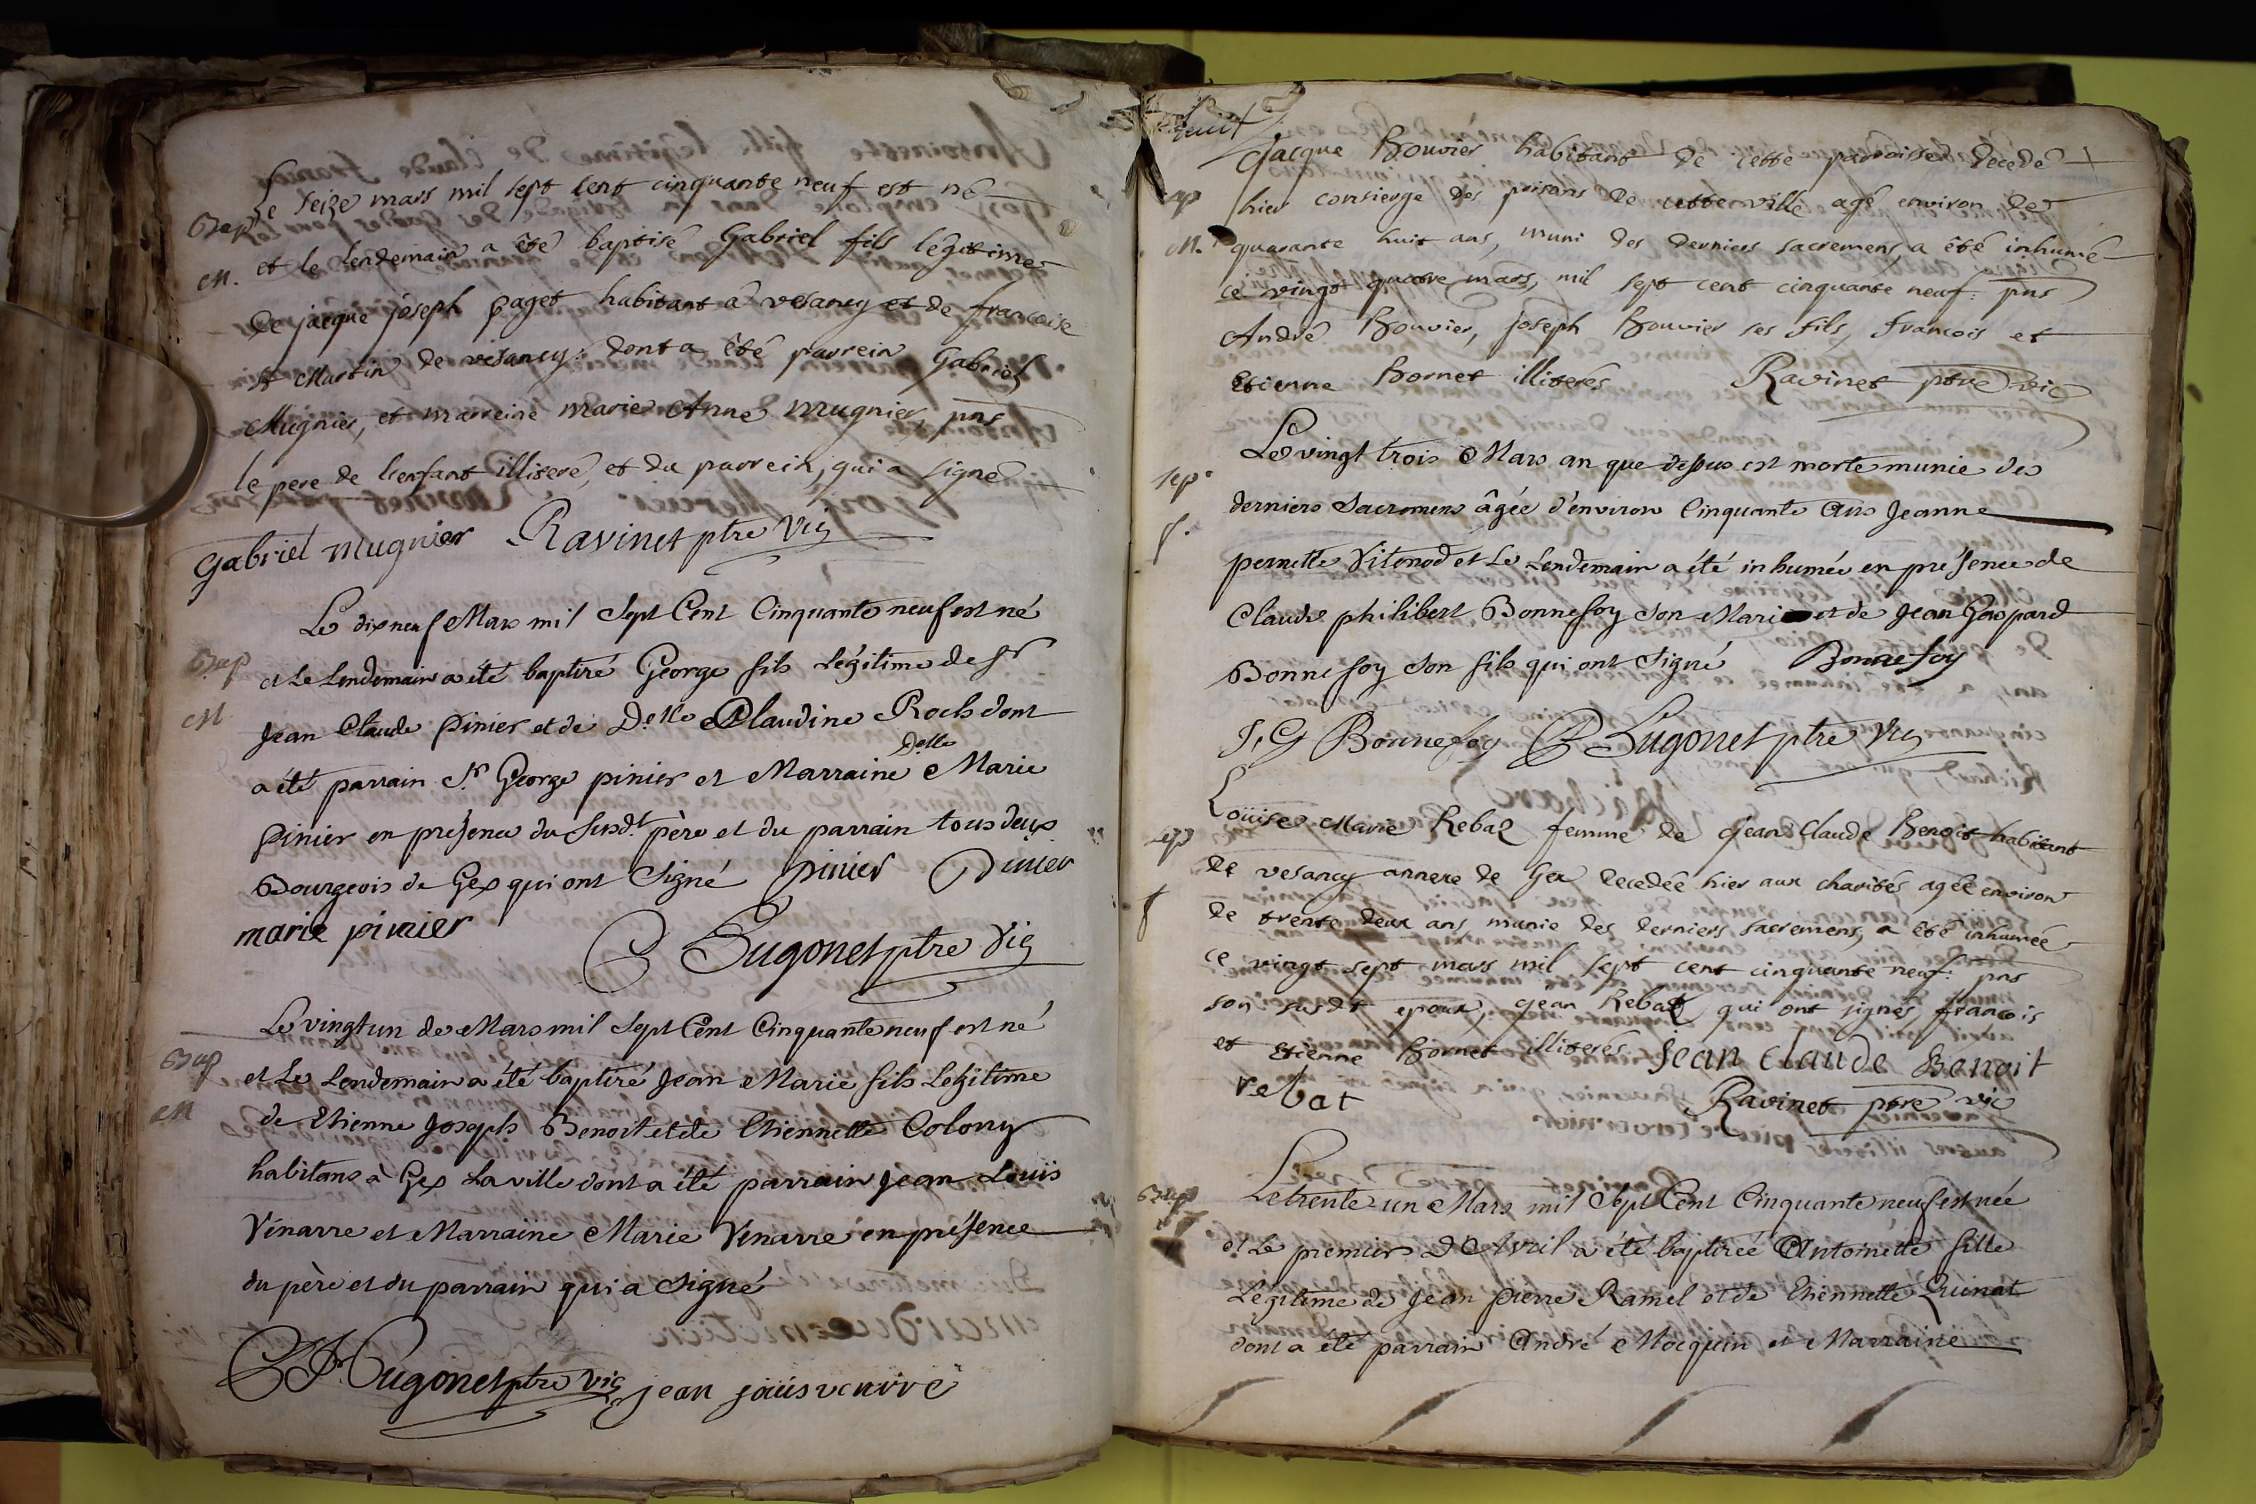 Bap
M.
Le seize mars mil sept cent cinquante neuf est né
et le lendemain a êté baptisé Gabriel fils légitime
de jacque joseph paget habitant à vesancy et de francoise
st Martin de vesancy: dont a êté parrein Gabriel
Mugnier, et marreine marie Anne mugnier, pns
le pere de l'enfant illiteré, et du parrein, qui a signé
Gabriel mugnier Ravinet ptre Vic
Bap
M
Le dix neuf Mars mil Sept Cent Cinquante neuf est né
et Le Lendemain a été baptisé George fils Légitime de Sr
Jean Claude Pinier et de Delle Claudine Roch dont
a été parrain Sr George pinier et Marraine Delle Marie
Pinier en présence du Susdt père et du parrain tous deux
Bourgeois de Gex qui ont Signé pinier Pinier
marie pinier
Sugonet ptre Vic
Bap
M
Le vingt un de Mars mil Sept Cent Cinquante neuf est né
et Le Lendemain a été baptisé Jean Marie fils Legitime
de Etienne Joseph Benoit et de Etiennette Colony
habitans à Gex La ville dont a été parrain Jean Louïs
Vénarre et Marraine Marie Vénarre en présence
du père et du parrain qui a Signé
Sugonet ptre Vic jean joüis venvre
huit
Jacque Bouvier habitant de cette paroisse, decedé
hier consierge des prisons de cette ville agé environ de
M.
quarante huit ans, muni des derniers sacremens, a êté inhumé
ce vingt quatre mars, mil sept cent cinquante neuf: pns
André Bouvier, joseph Bouvier ses fils, francois et
Etienne Bornet illiterés Ravinet ptre vic
sep
f.
Le vingt trois Mars an que dessus est morte munie des
derniers Sacremens âgée d'environ Cinquante Ans Jeanne
pernette Vitenod et Le Lendemain a été inhumée en présence de
Claude philibert Bonnefoy Son Mari et de Jean Gaspard
Bonnefoy son fils qui ont Signé Bonnefoy
J, G Bonnefoy Sugonet ptre Vic
sep
f
Loüise Marie Rebat femme de Jean Claude Benoit habitant
de vesancy annexe de Gex decedée hier aux charités agée environ
de trente deux ans munie des derniers sacremens, a êté inhumée
ce vingt sept mars mil sept cent cinquante neuf: pns
son susdt epoux, Jean Rebat qui ont signés, francois
et Etienne Bornet illiterés Jean Claude Benoit
rebat Ravinet ptre vic
Bap
f
Le trente un Mars mil Sept Cent Cinquante neuf est née
et Le premier D'Avril a été baptisée Antoinette fille
Légitime de Jean pierre Ramel et de Etiennette Quinat
dont a été parrain André Mocquin et Marraine